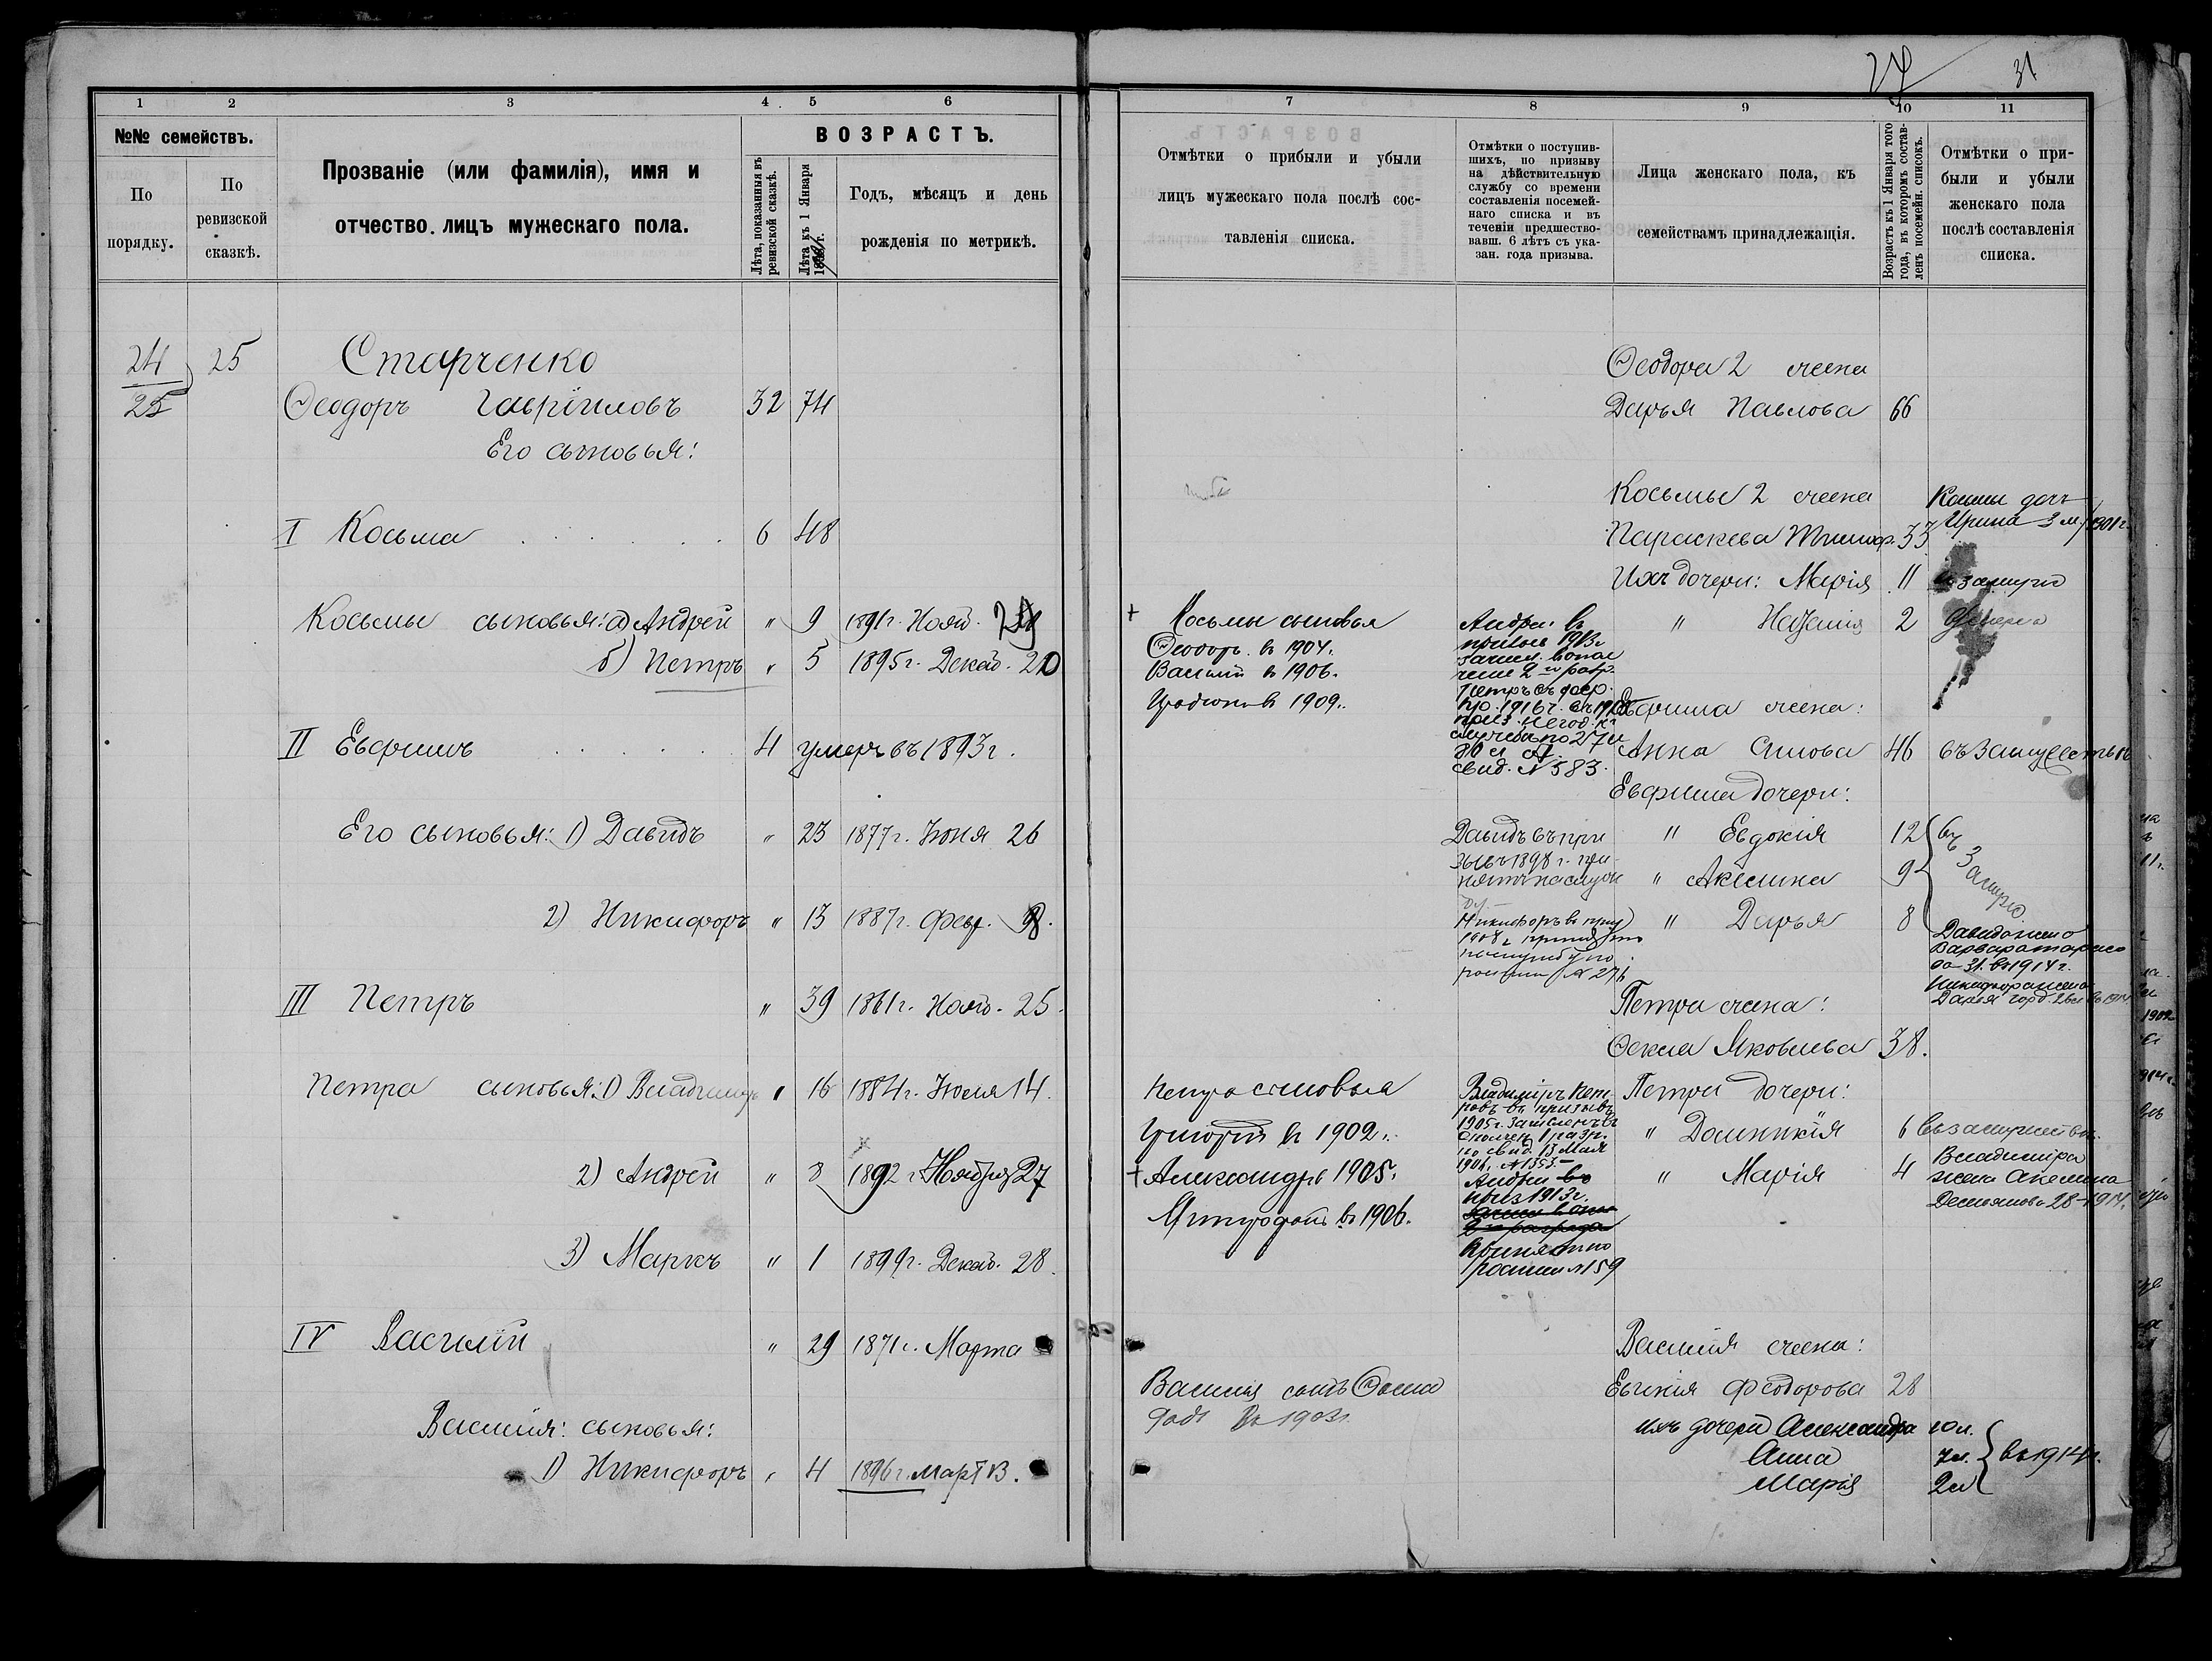 27 31
1 2 3 4 5 6
№№ семействъ.
По порядку.
По ревизской сказкѣ.
Прозваніе (или фамилія), имя и
отчество лицъ мужескаго пола.
ВОЗРАСТЪ.
Лѣта, показанныя въ ревизской сказкѣ.
Лѣта къ 1 Января
Годъ, мѣсяцъ и день
рожденія по метрикѣ.
24 25 Старченко
25 Ѳеодоръ Гавріиловъ 32 74
Его сыновья:
I Косьма 6 48
Косьмы сыновья: а) Андрей " 9 1891 г. Нояб.
б) Петръ " 5 1895 г. Декаб. 20
II Евфимъ 4 умеръ въ 1893 г.
Его сыновья: 1) Давидъ " 23 1877 г. Іюня 26
2) Никифоръ " 13 1887 г. Февр.
III Петръ " 39 1861 г. Нояб. 25.
Петра сыновья: 1) Владиміръ " 16 1884 г. Іюля 14.
2) Андрей " 8 1892 г. Ноября 27
3) Маркъ " 1 1899 г. Декаб. 28.
IV Василій " 29 1871 г. Марта
Василія: сыновья:
1) Никифоръ " 4 1896 г. Март 13.
7 8 9 10 11
Отмѣтки о прибыли и убыли
лицъ мужескаго пола послѣ сос-
тавленія списка.
Отмѣтки о поступив-
шихъ, по призыву
на дѣйствительную
службу со времени
составленія посемей-
наго списка и въ
теченіи предшество-
вавш. 6 лѣтъ съ ука-
зан. года призыва.
Лица женскаго пола, къ
семействамъ принадлежащія.
Возрастъ къ 1 Января того
года, въ которомъ состав-
ленъ посемейн. списокъ.
Отмѣтки о при-
были и убыли
женскаго пола
послѣ составленія
списка.
Ѳеодора 2 жена
Дарья Павлова 66
Косьмы 2 жена
Параскева 33
Косьмы дочь
Ирина 3 м. 1901 г.
Ихъ дочери: Марія 11 замуж
" Наталія 2 умерла
+ Косьмы сыновья
Ѳеодоръ в 1904.
Василій в 1906.
в 1909.
Андрей в
призыв 1913 г.
зачисл. в опол
чение 2 го разр.
Петръ съ доср.
пр. 1916 г.
свид. № 583.
Евфима жена:
Анна 46 въ замужествѣ
Евфима дочери:
" Евдокія 12 въ
" Акилина 9 замуж.
" Дарья 8
Давидъ въ при
зывъ 1898 г. при
нятъ на служ
Никифоръ в приз
1908 г. принят
на службу по
росписи № 276
Давида жена
Варвара
31. в 1914 г.
Никифора жена
в 1914
Петра жена:
Ѳекла Яковлева 38.
Петра сыновья
Григорій в 1902 г.
+ Александръ 1905.
Митрофанъ в 1906.
Владиміръ Пет
ровъ въ призывъ
1905 г. зачисленъ в
ополчен. 1 разр.
по свид. 15 Мая
Андрей во
приз 1913 г.
2 го разряда
принят по
росписи № 159
Петра дочери:
" Домникія 6 въ замужествѣ.
" Марія 4
Владиміра
жена Акилина
Демьянова 28 - 1914.
Василія жена:
Евгенія Ѳеодорова 28
Василія сынъ
в 1903 г.
ихъ дочери Александра 10 л.
Анна 7 л. в 1914 г.
Марія 2 л